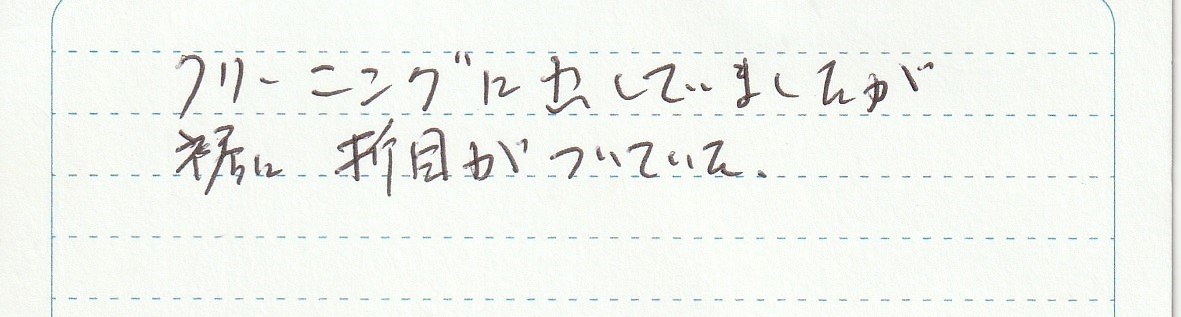 クリーニングに出していましたが
裾に 折目がついていた.